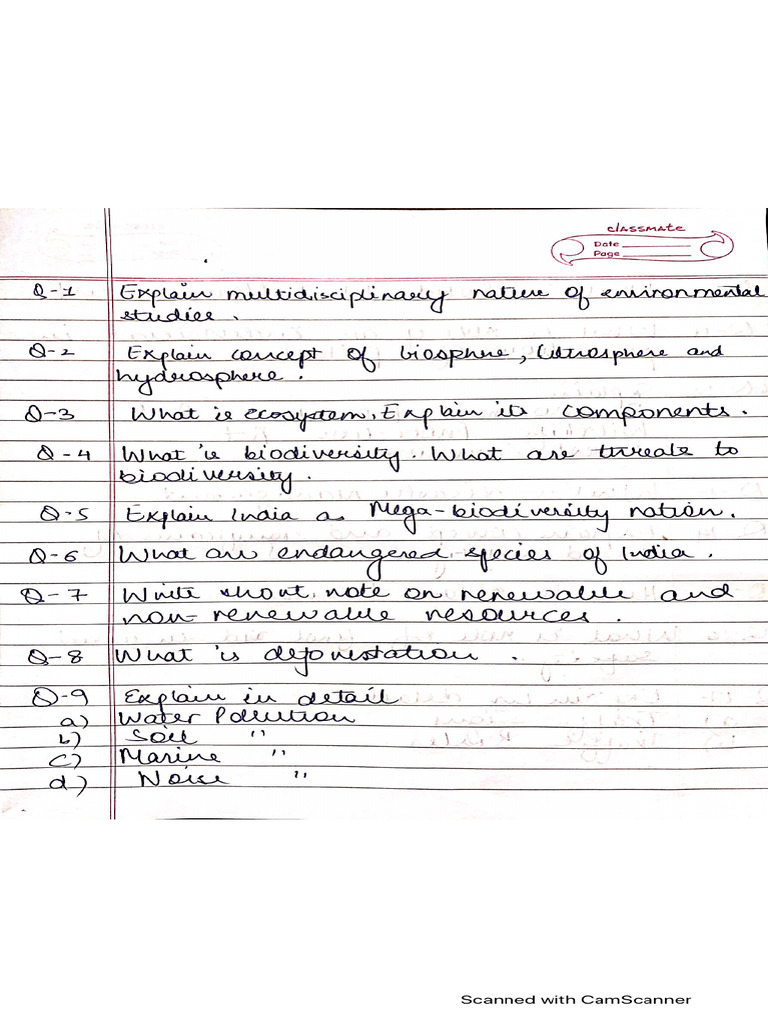 classmate
Date
Page
Q-1 Explain multidisciplinary nature of environmental
studies.
Q-2 Explain concept of biosphere, Litrosphere and
hydrosphere.
Q-3 What is ecosystem. Explain its components.
Q-4 What is biodiversity. What are threats to
biodiversity.
Q-5 Explain India as Mega-biodiversity nation.
Q-6 What are endangered species of India.
Q-7 Write short note on renewable and
non-renewable resources.
Q-8 What is deforestation.
Q-9 Explain in detail
a) Water Pollution
b) Soil "
c) Marine "
d) Noise "
Scanned with CamScanner